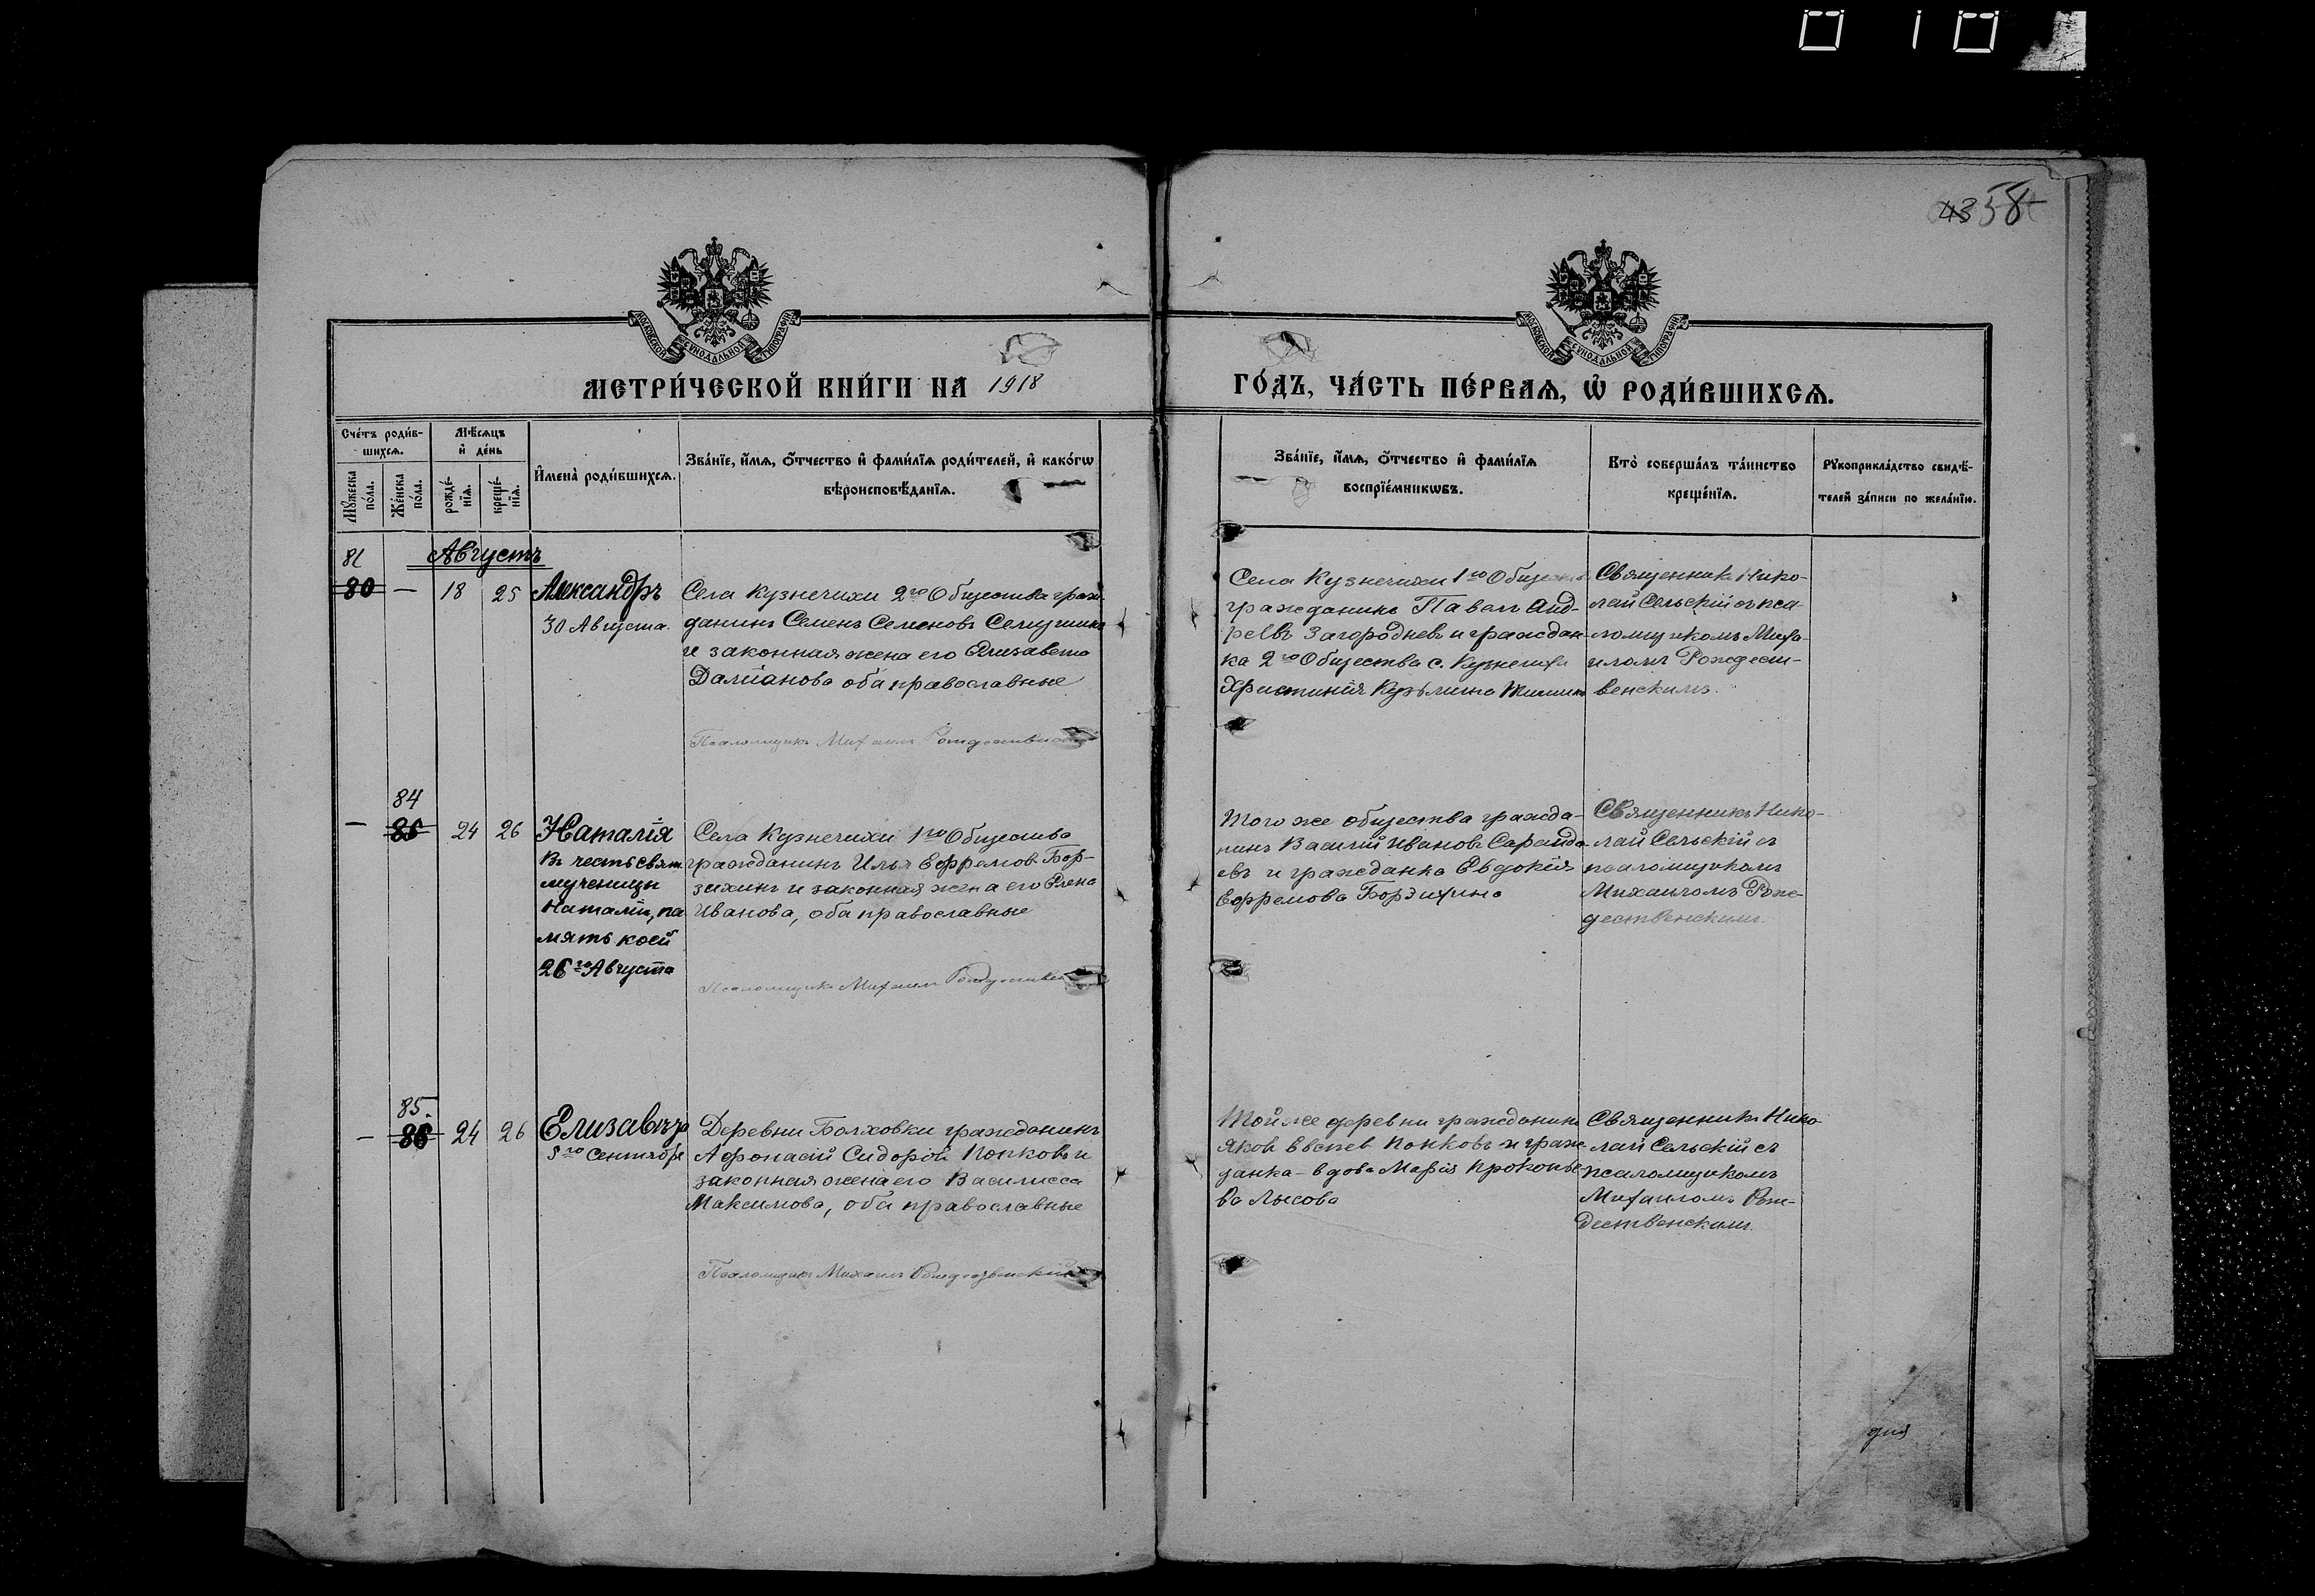 43 58
МОСКОВСКОЙ СУНОДАЛЬНОЙ ТИПОГРАФІИ
МОСКОВСКОЙ СУНОДАЛЬНОЙ ТИПОГРАФІИ
МЕТРИ́ЧЕСКОЙ КНИ́ГИ НА 1918
ГО́ДЪ, ЧА́СТЬ ПЕ́РВАѦ, Ѿ РОДИ́ВШИХСѦ.
Сче́тъ роди́в-
шихсѧ.
Мѣ́сѧцъ
и҆ де́нь
Мꙋ́жеска по́ла.
Же́нска по́ла.
рожде́-нїѧ.
креще́-нїѧ.
И҆мена̀ роди́вшихсѧ.
Зва́нїе, и҆́мѧ, ѻ҆́тчество и҆ фами́лїѧ роди́телей, и҆ како́гѡ
вѣроисповѣ́данїѧ.
Зва́нїе, и҆́мѧ, ѻ҆́тчество и҆ фами́лїѧ
воспрїе́мникѡвъ.
Кто̀ соверша́лъ та́инство
креще́нїѧ.
Рꙋкоприкла́дство свидѣ́-
телей за́писи по жела́нїю.
Августъ
81
80 — 18 25
Александръ
30 Августа.
Села Кузнечихи 2го Общества граж-
данинъ Семенъ Семеновъ
и законная жена его Елизавета
Даміанова оба православные
Псаломщикъ Михаилъ Рождественскій
Села Кузнечихи 1го Общества
гражданинъ Павелъ Анд-
реевъ Загородневъ и граждан-
ка 2го Общества с. Кузнечихи
Христинія Кузьмина
Священникъ Нико-
лай Сельскій съ пса-
ломщикомъ Миха-
иломъ Рождест-
венскимъ.
84
— 85 24 26
Наталія
Въ честь свят.
мученицы
Наталіи, па
мять коей
26го Августа
Села Кузнечихи 1го Общества
гражданинъ Илья Ефремовъ Бор-
зихинъ и законная жена его Елена
Иванова, оба православные
Псаломщикъ Михаилъ
Того же общества гражда-
нинъ Василій Ивановъ
евъ и гражданка Евдокія
Ефремова Борзихина
Священникъ Нико-
лай Сельскій съ
псаломщикомъ
Михаиломъ Рож-
дественскимъ.
85.
— 86 24 26
Елизавета
5го Сентября
Деревни Болховки гражданинъ
Афонасій Сидоровъ Попковъ и
законная жена его Василисса
Максимова, оба православные
Псаломщикъ Михаилъ Рождественскій
Той же деревни гражданинъ
Яковъ Попковъ и граж-
данка - вдова Марія Прокопье-
ва Лысова
Священникъ Нико
лай Сельскій съ
псаломщикомъ
Михаиломъ Рож-
дественскимъ.
дня